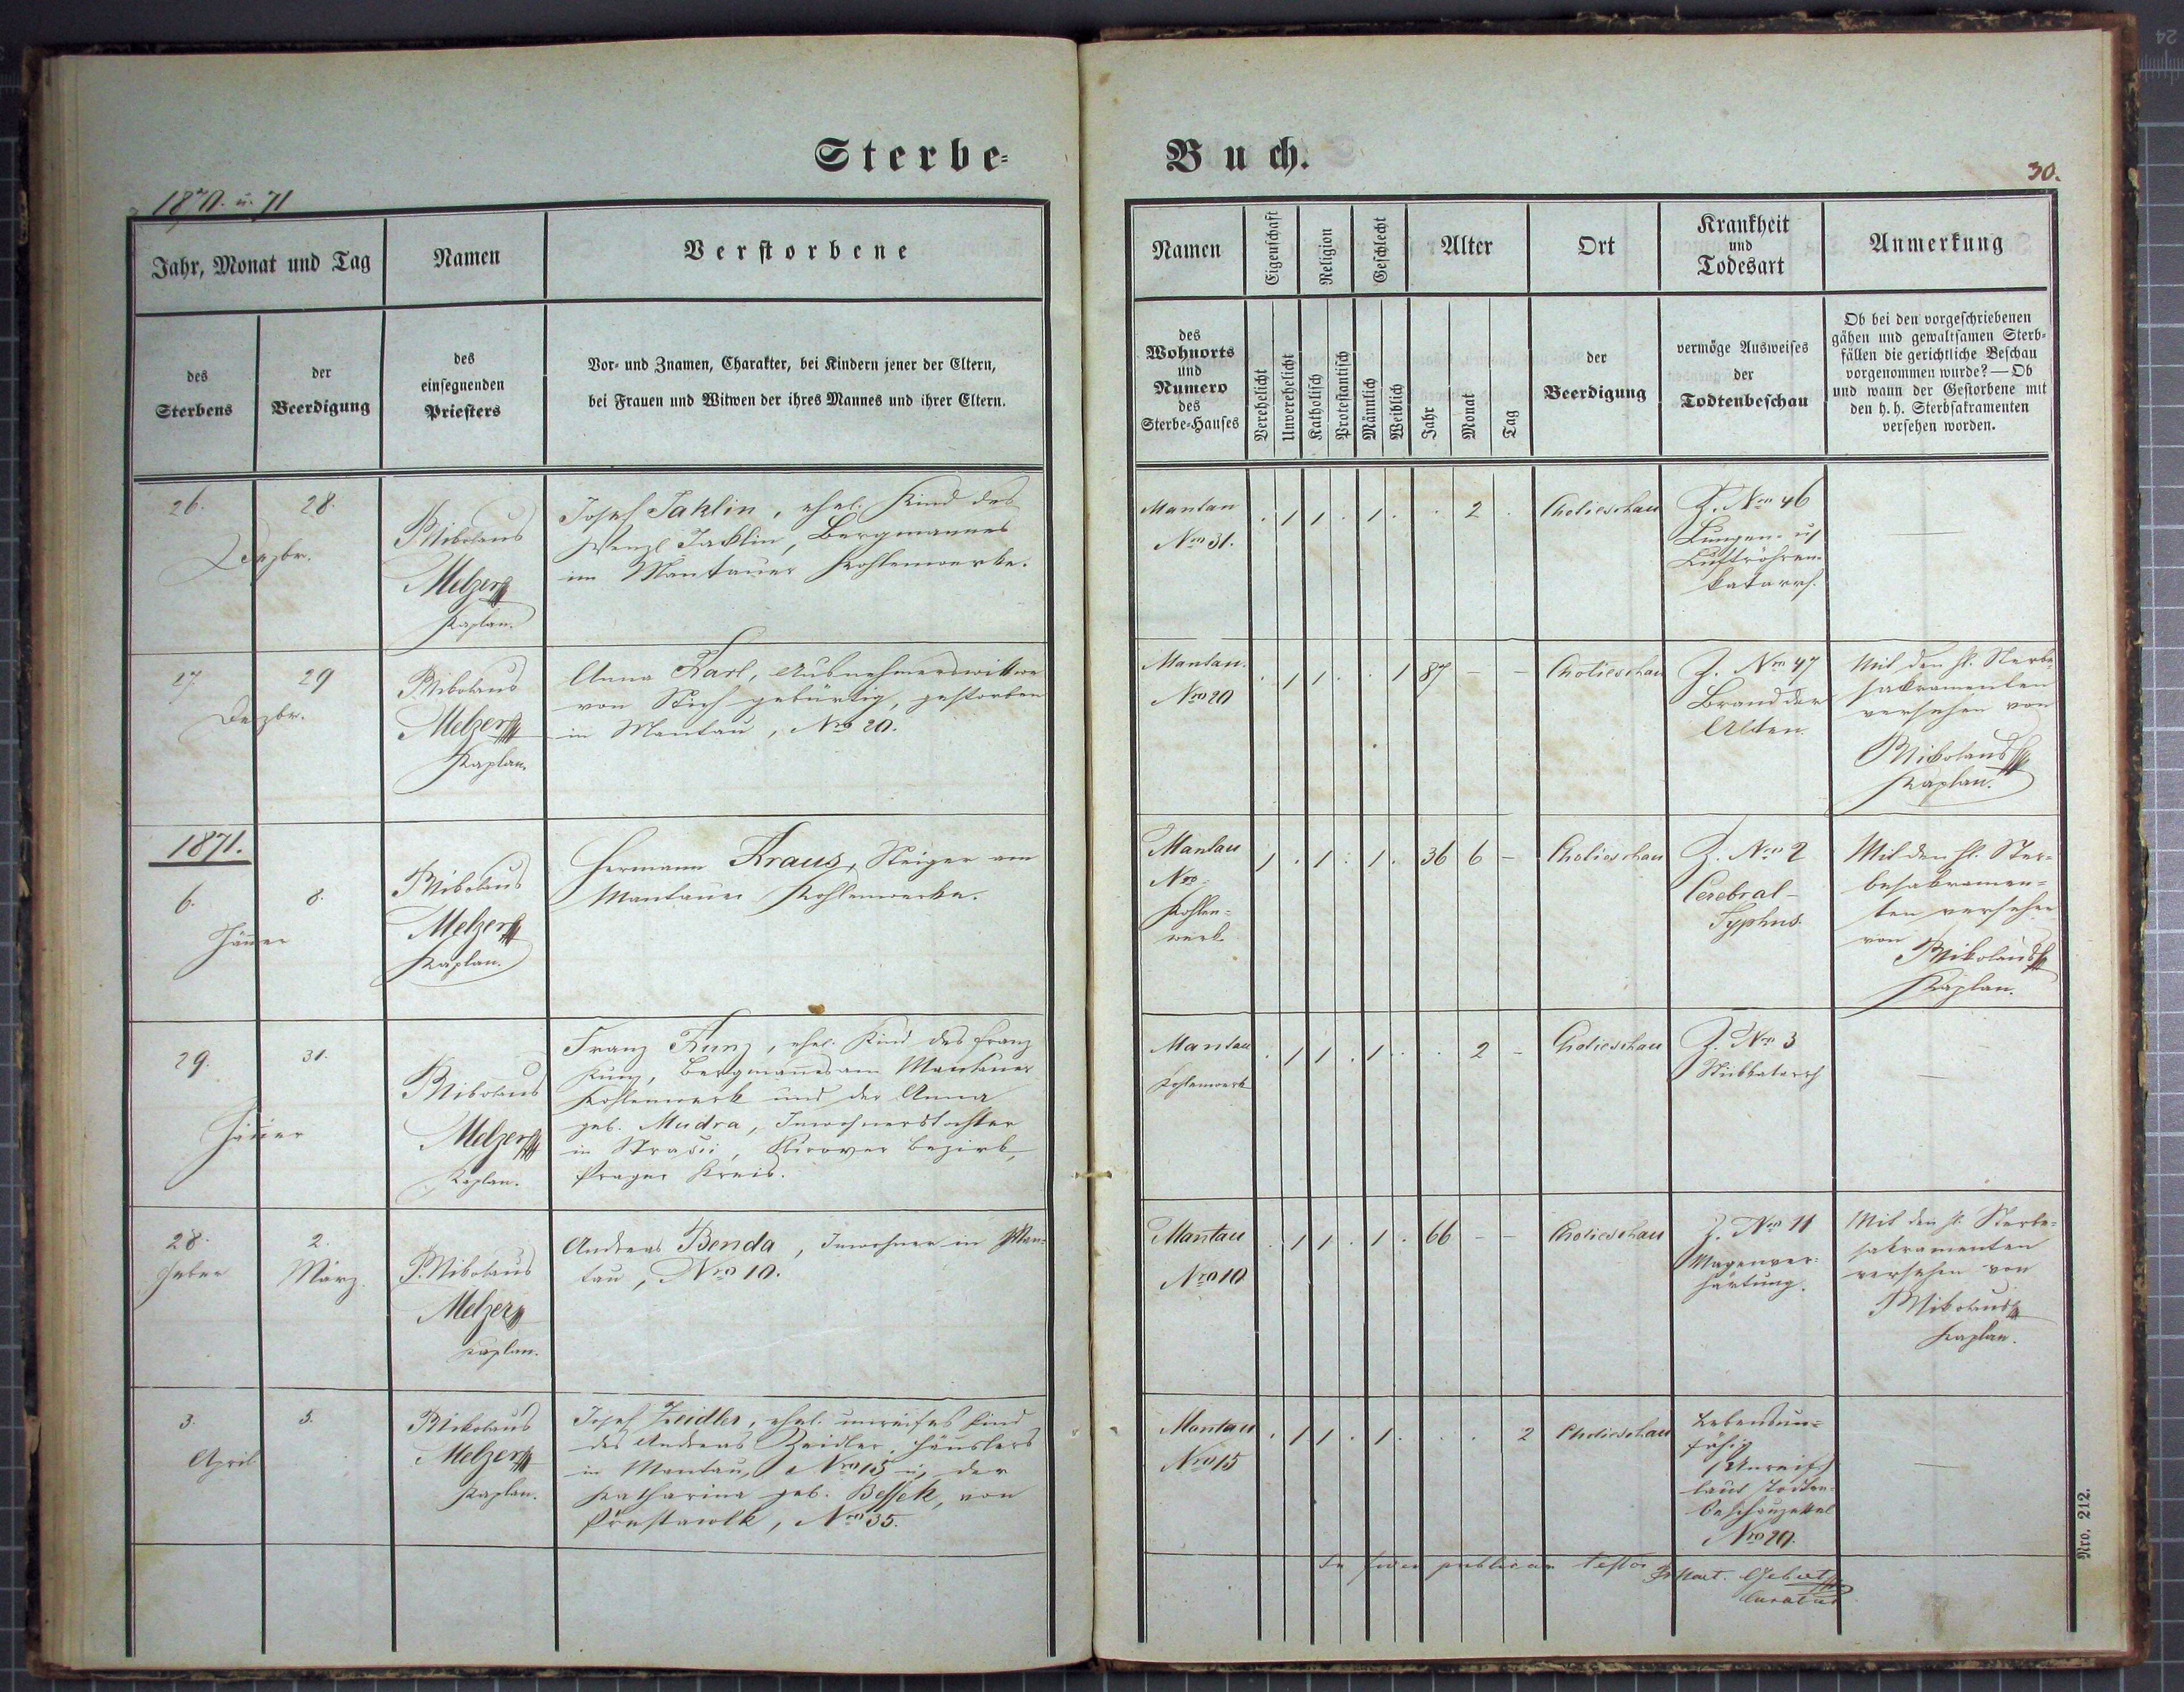 Sterbe-
1870. u. 71
Jahr, Monat und Tag
Namen
Verstorbene
des
Sterbens
der
Beerdigung
des
einsegnenden
Priesters
Vor- und Znamen, Charakter, bei Kindern jener der Eltern,
bei Frauen und Witwen der ihres Mannes und ihrer Eltern.
26.
28.
Dezbr.
P Nikolaus
Melzer
Kaplan.
Josef Jaklin, ehel. Kind des
Wenzl Jaklin, Bergmannes
im Mantauer Kohlenwerke.
27.
29
Dezbr.
P Nikolaus
Melzer
Kaplan.
Anna Karl, Ausnehmerswittwe
von Stich gebürtig, gestorben
in Mantau, Nro 20.
1871.
6.
8.
Jänner
P Nikolaus
Melzer
Kaplan.
Hermann Kraus, Steiger am
Mantauer Kohlenwerke.
29.
31.
Jänner
P Nikolaus
Melzer
Kaplan.
Franz Kunz, ehel. Kind des Franz
Kunz, Bergmannes am Mantauer
Kohlenwerk und der Anna
geb. Mudra, Inwohnerstochter
in Bezirk,
Prager Kreis.
28.
Feber
2.
März.
P. Nikolaus
Melzer
Kaplan.
Andreas Benda, Inwohner in Man-
tau, Nro 10.
3.
5.
April
P Nikolaus
Melzer
Kaplan.
Josef Zeidler, ehel. unreifes Kind
des Andreas Zeidler, Häuslers
in Mantau, Nro 15 u. der
Katharina geb. von
Nro 35.
Buch.
30.
Namen
Eigenschaft
Religion
Geschlecht
Alter
Ort
Krankheit
und
Todesart
Anmerkung
des
Wohnorts
und
Numero
des
Sterbe-Hauses
Verehelicht
Unverehelicht
Katholisch
Protestantisch
Männlich
Weiblich
Jahr
Monat
Tag
der
Beerdigung
vermöge Ausweises
der
Todtenbeschau
Ob bei den vorgeschriebenen
gähen und gewaltsamen Sterb-
fällen die gerichtliche Beschau
vorgenommen wurde? — Ob
und wann der Gestorbene mit
den h. h. Sterbsakramenten
versehen worden.
Mantau
Nro 31.
. 1 1 . 1 . . 2 .
Chotieschau
Z. Nro 46
Lungen- u.
Luftröhren-
katarrh.
—
Mantau.
Nro 20
. 1 1 . . 1 87 — —
Chotieschau
Z. Nro 47
Brand der
Alten.
Mit den hl. Sterbe-
sakramenten
versehen von
P Nikolaus
Kaplan.
Mantau
Nro -
Kohlen-
werk
1 . 1 . 1 . 36 6 —
Chotieschau
Z. Nro 2
Cerebral-
Typhus.
Mit den hl. Ster-
besakramen-
ten versehen
von P Nikolaus
Kaplan.
Mantau
Kohlenwerk
. 1 1 . 1 . . 2 —
Chotieschau
Z. Nro 3
Stickkatarrh
—
Mantau
Nro 10
. 1 1 . 1 . 66 — —
Chotieschau
Z. Nro 11
Magenver-
härtung.
Mit den hl. Sterbe-
sakramenten
versehen von
P Nikolaus
Kaplan.
Mantau
Nro 15
. 1 1 . 1 . . . 2
Chotieschau
Lebensun-
fähig
/Unreif/
laut Todten-
beschauzettel
—
publicam testor
Curatus
Nro. 212.